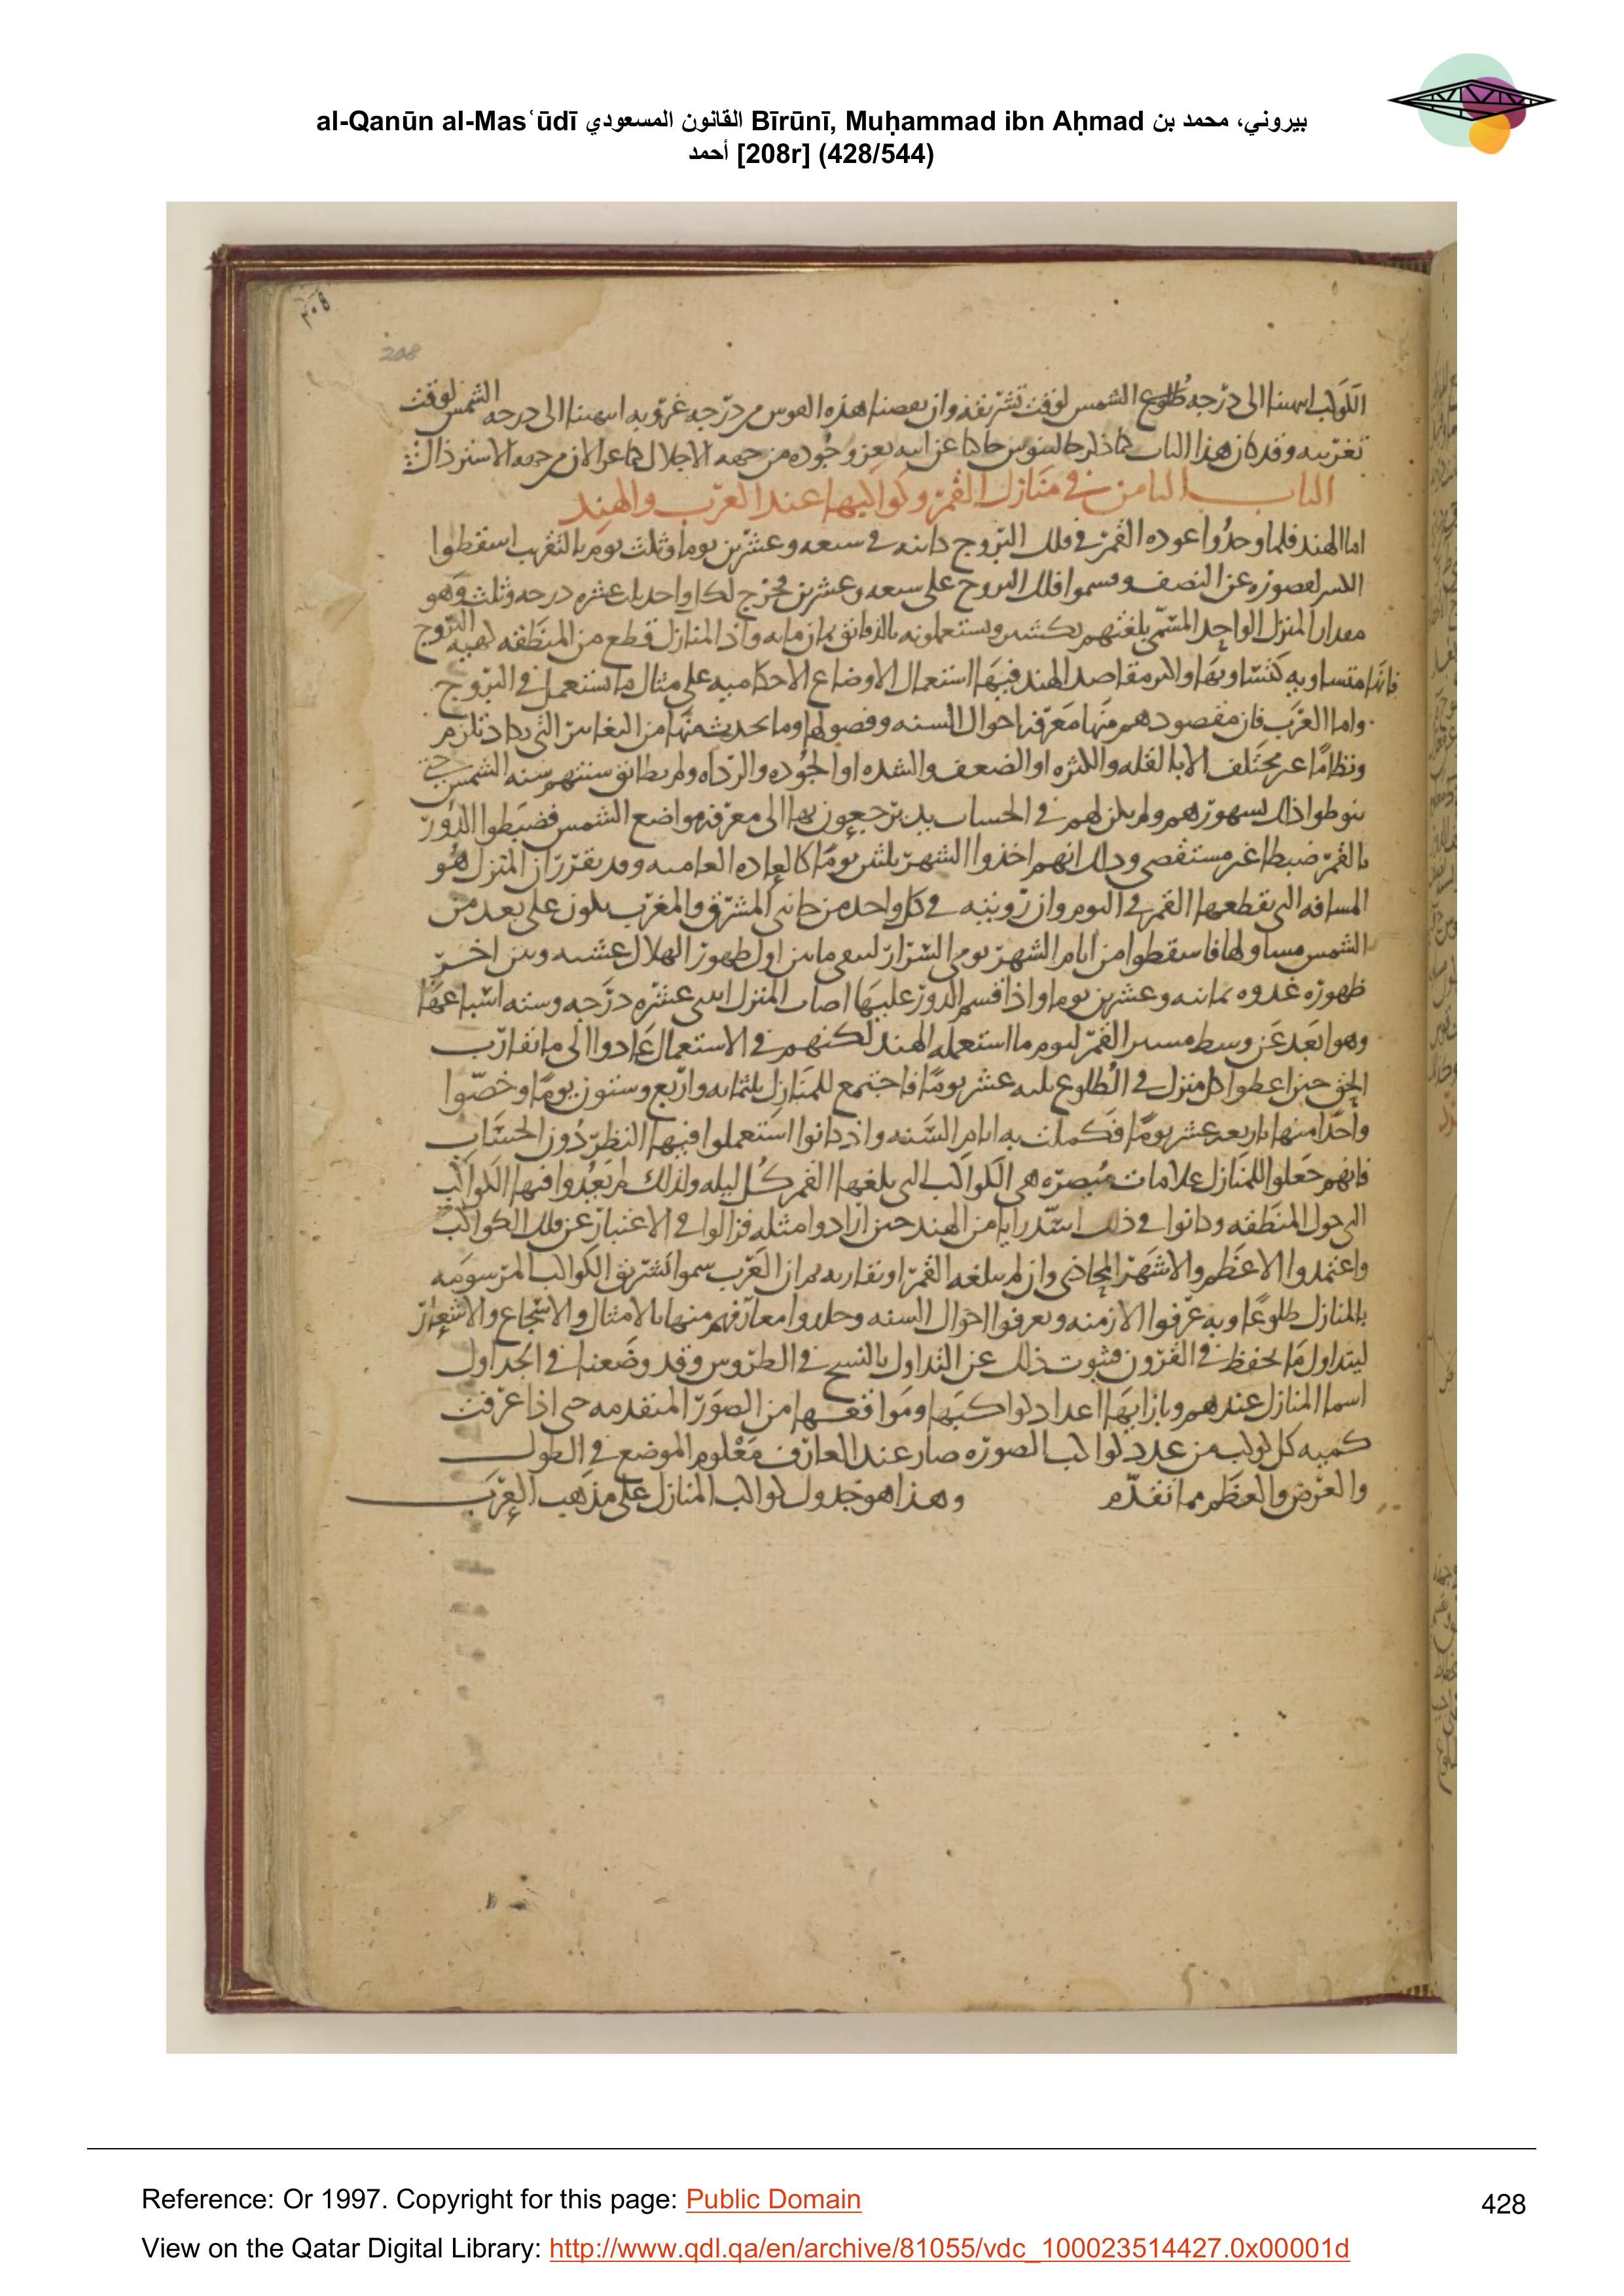 al-Qanūn al-Mas‘ūdī القانون المسعودي Bīrūnī, Muḥammad ibn Aḥmad بيروني، محمد بن
أحمد [208r] (428/544)
٢٠٨
208
الكواكب انتهينا الى درجه طلوع الشمس لوقت تشريقه وان نقصنا هذه القوس من درجه غروبه انتهينا الى درجه الشمس لوقت
تغريبه وقد كان هذا الباب كما ذكر جالينوس حاكيا عن ابيه يعز وجوده من جهه الاجلال كما عز الان من جهه الاسترذال
الباب الثامن في منازل القمر وكواكبها عند العرب والهند
اما الهند فلما وجدوا عوده القمر في فلك البروج كائنه في سبعه وعشرين يوما وثلث يوم بالتقريب اسقطوا
الكسر لقصوره عن النصف وقسموا فلك البروج على سبعه وعشرين فخرج لكل واحد ثلث عشره درجه وثلث وهو
مقدار المنزل الواحد المسمى بلغتهم نكشتر ويستعملونه بالدقائق ثمان مايه واذ المنازل قطع من المنطقه كهيه البروج
فانها متساويه كتساويها واكثر مقاصد الهند فيها استعمال الاوضاع الاحكاميه على مثال ما يستعمل في البروج
واما العرب فان مقصودهم منها معرفه احوال السنه وفصولها وما يحدث منها من التغايير التي تكاد تلزم
ونظاما غير مختلف الا بالقله والكثره او الضعف والشده او الجوده والرداه ولم يطابق سنتهم سنه الشمس حتى
ينوطوا ذلك بشهورهم ولم يكن لهم في الحساب يد يرجعون بها الى معرفه مواضع الشمس فضبطوا الدور
بالقمر ضبطا غير مستقصى وذلك انهم اخذوا الشهر ثلثين يوما كالعاده العاميه وقد تقرر ان المنزل هو
المسافه التي يقطعها القمر في اليوم وان رويته في كل واحد من جانبي المشرق والمغرب يكون على بعد من
الشمس مساو لها فاسقطوا من ايام الشهر يومي السرار ليبقى ما بين اول ظهور الهلال عشيه وبين اخر
ظهوره غدوه ثمانيه وعشرين يوما واذا قسم الدور عليها اصاب المنزل اثنى عشره درجه وسته اسباعها
وهو ابعد عن وسط مسير القمر ليوم ما استعمله الهند لكنهم في الاستعمال عادوا الى ما تقارب
الحق حين اعطوا كل منزل في الطلوع ثلثه عشر يوما فاجتمع للمنازل ثلثمايه واربع وستون يوما وخصوا
واحدا منها باربعه عشر يوما فكملت به ايام السنه واذ كانوا استعملوا فيها النظر دون الحساب
فانهم جعلوا للمنازل علامات مبصره هي الكواكب التي يلغها القمر كل ليله ولذلك لم يعدوا فيها الكواكب
التي حول المنطقه وكانوا في ذلك اسد رايا من الهند حين ارادوا مثله فزالوا في الاعتبار عن فلك الكواكب
واعتمدوا الاعظم والاشهر المحاذي وان لم يبلغه القمر او يقاربه ثم ان العرب سموا تشريق الكواكب المرسومه
بالمنازل طلوعا وبه عرفوا الازمنه وتعرفوا احوال السنه وخلدوا معارفهم منها بالامثال والاسجاع والاشعار
ليتداول بالحفظ في القرون فينوب ذلك عن التداول بالنسخ في الطروس وقد وضعنا في الجداول
اسما المنازل عندهم وبازايها اعداد كواكبها ومواقعها من الصور المتقدمه حتى اذا عرفت
كميه كل كوكب من عدد كواكب الصوره صار عند العارف معلوم الموضع في الطول
والعرض والعظم مما تقدم وهذا هو جدول كواكب المنازل على مذهب العرب
Reference: Or 1997. Copyright for this page: Public Domain
428
View on the Qatar Digital Library: http://www.qdl.qa/en/archive/81055/vdc_100023514427.0x00001d